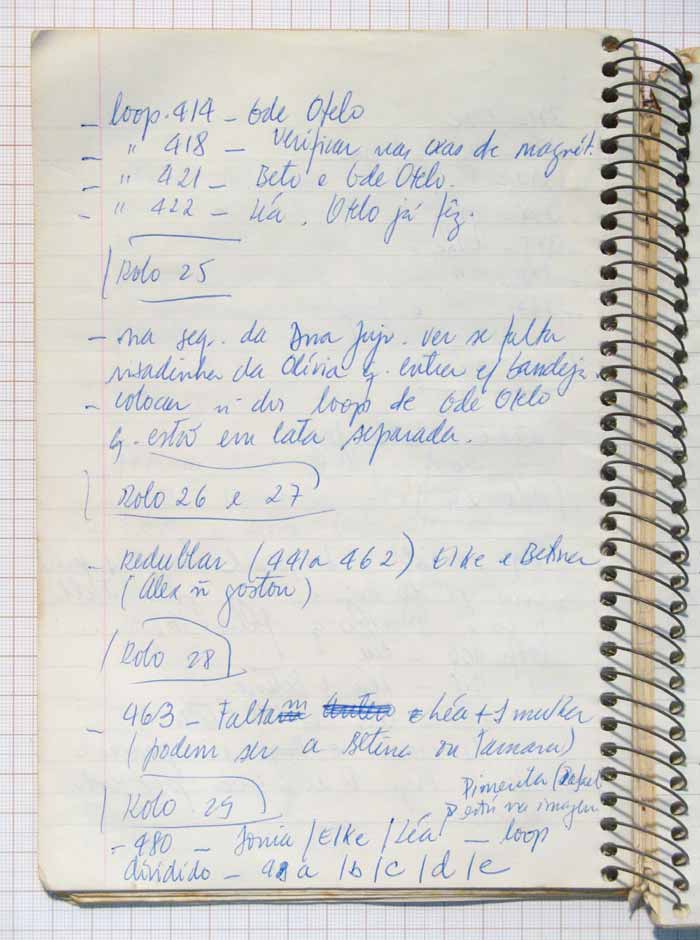 - loop.414 - Gde Otelo
- " 418 - Verificar nas cxas de magnét.
- " 421 - Beto e Gde Otelo.
- " 422 - Léa. Otelo já fêz.
Rolo 25
- na seq. da Dna Juju. ver se falta
risadinha da Olívia q. entra c/ bandeja.
- colocar nº dos loops de Gde Otelo
q. está em lata separada.
Rolo 26 e 27
- Redublar (441a 462) Elke e Betina
(Alex ñ gostou)
Rolo 28
- 463 - Faltam Léa + 1 mulher
(podem ser a Betina ou Tamara)
Rolo 29
Pimenta (Rafael
está na imagem
- 480 - Sonia / Elke / Léa - loop
dividido - a / b / c / d / e